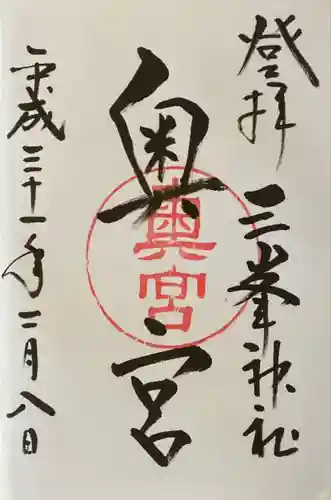 登拝 三峯神社
奥宮
奥宮
平成三十一年二月八日